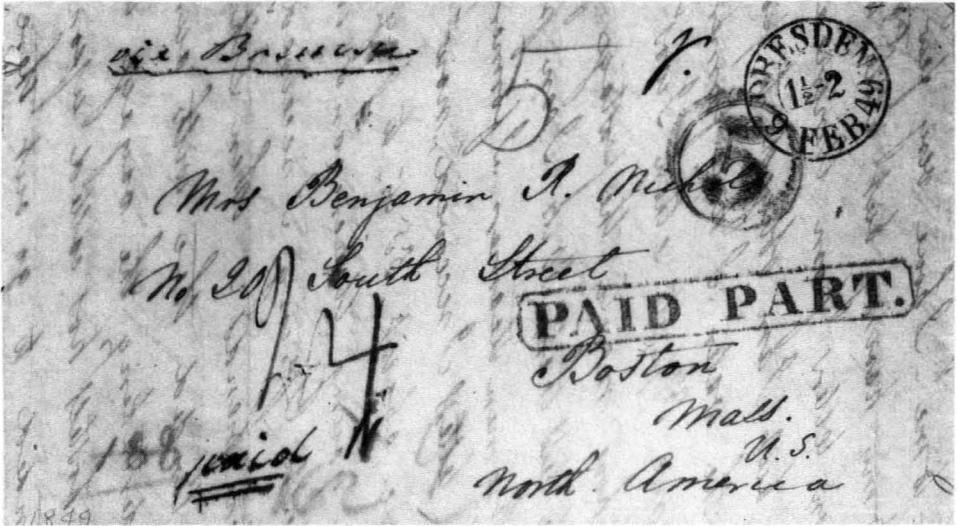 via Bremen
5
DRESDEN. 64
1½-2
9 FEB 49
5
Mrs Benjamin R. Nichols
No. 20 South Street
PAID PART.
24
Boston
Mass.
U. S.
North America
188
paid
1849